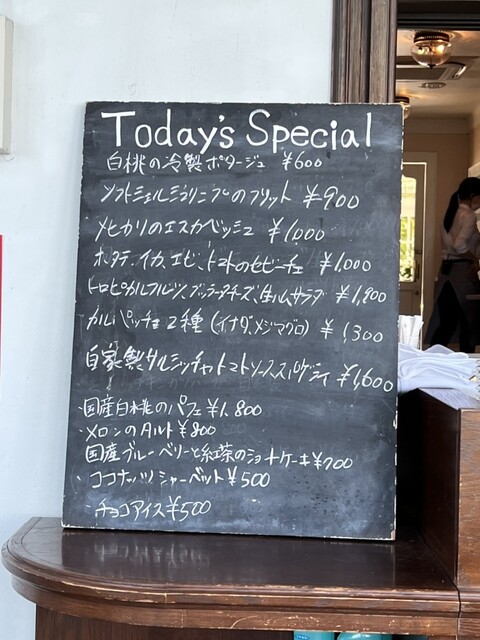 Today's Special
白桃の冷製ポタージュ ¥600
ソフトシェルシュリンプのフリット ¥900
メヒカリのエスカベッシュ ¥1,000
ホタテ、イカ、エビ、トマトのセビーチェ ¥1,000
トロピカルフルーツ、ブッラータチーズ、生ハムサラダ ¥1,900
カルパッチョ2種(イナダ、メジマグロ) ¥1,300
自家製サルシッチャトマトソーススパゲティ ¥1,600
・国産白桃のパフェ¥1,800
・メロンのタルト¥800
国産ブルーベリーと紅茶のショートケーキ¥700
・ココナッツシャーベット¥500
・チョコアイス¥500